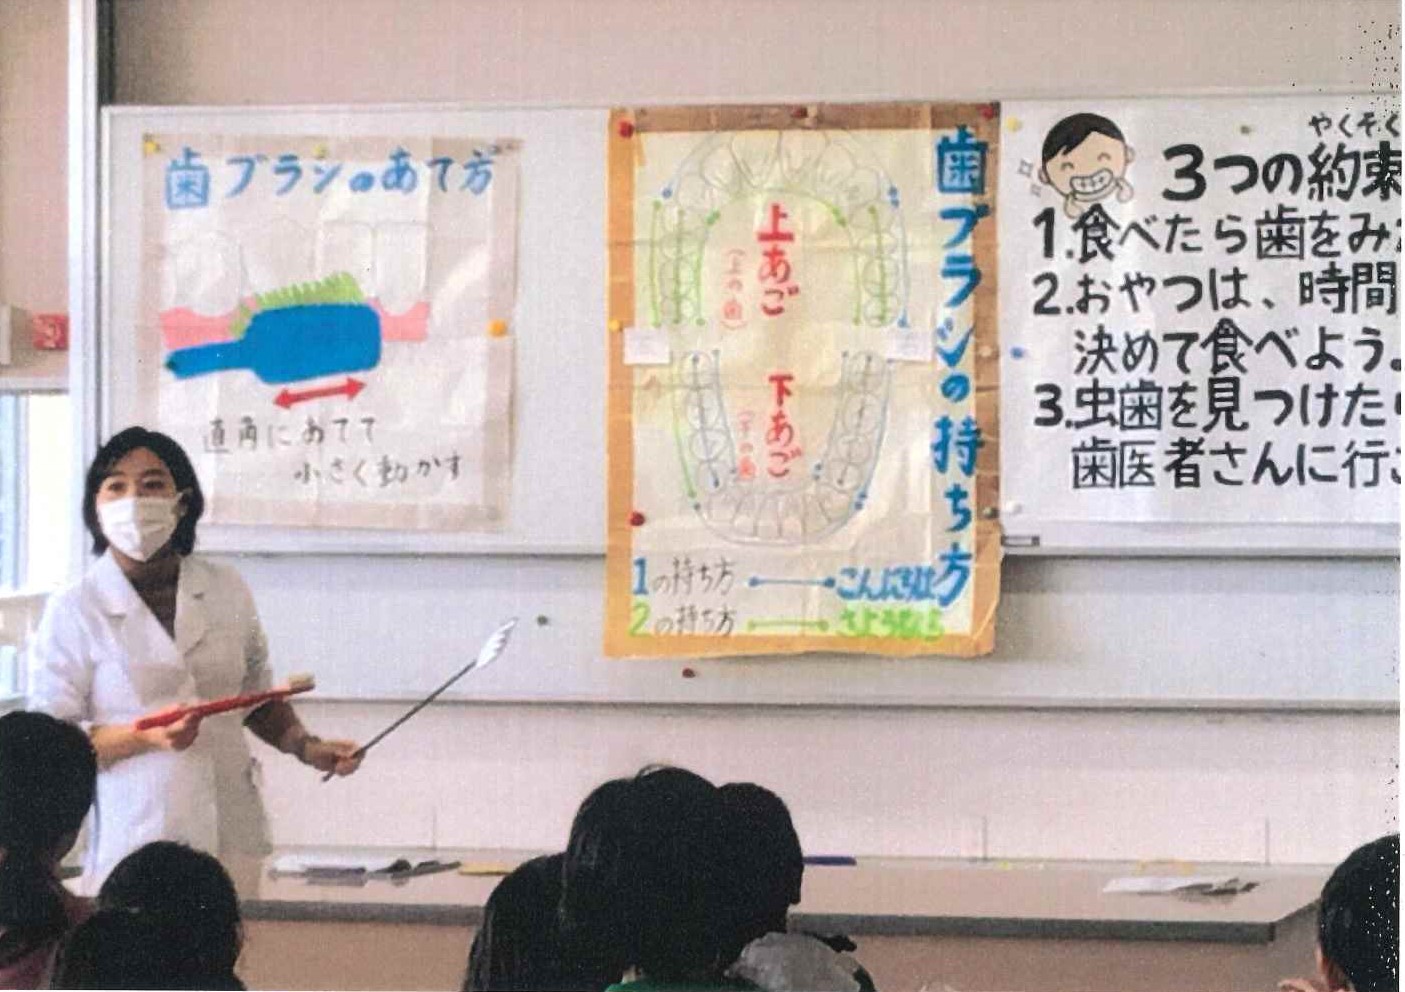 歯ブラシのあて方
直角にあてて
小さく動かす
歯ブラシの持ち方
上あご
(上の歯)
下あご
(下の歯)
1の持ち方 こんにちは
2の持ち方 さようなら
やくそく
3つの約束
1.食べたら歯をみ
2.おやつは、時間
決めて食べよう。
3.虫歯を見つけた
歯医者さんに行